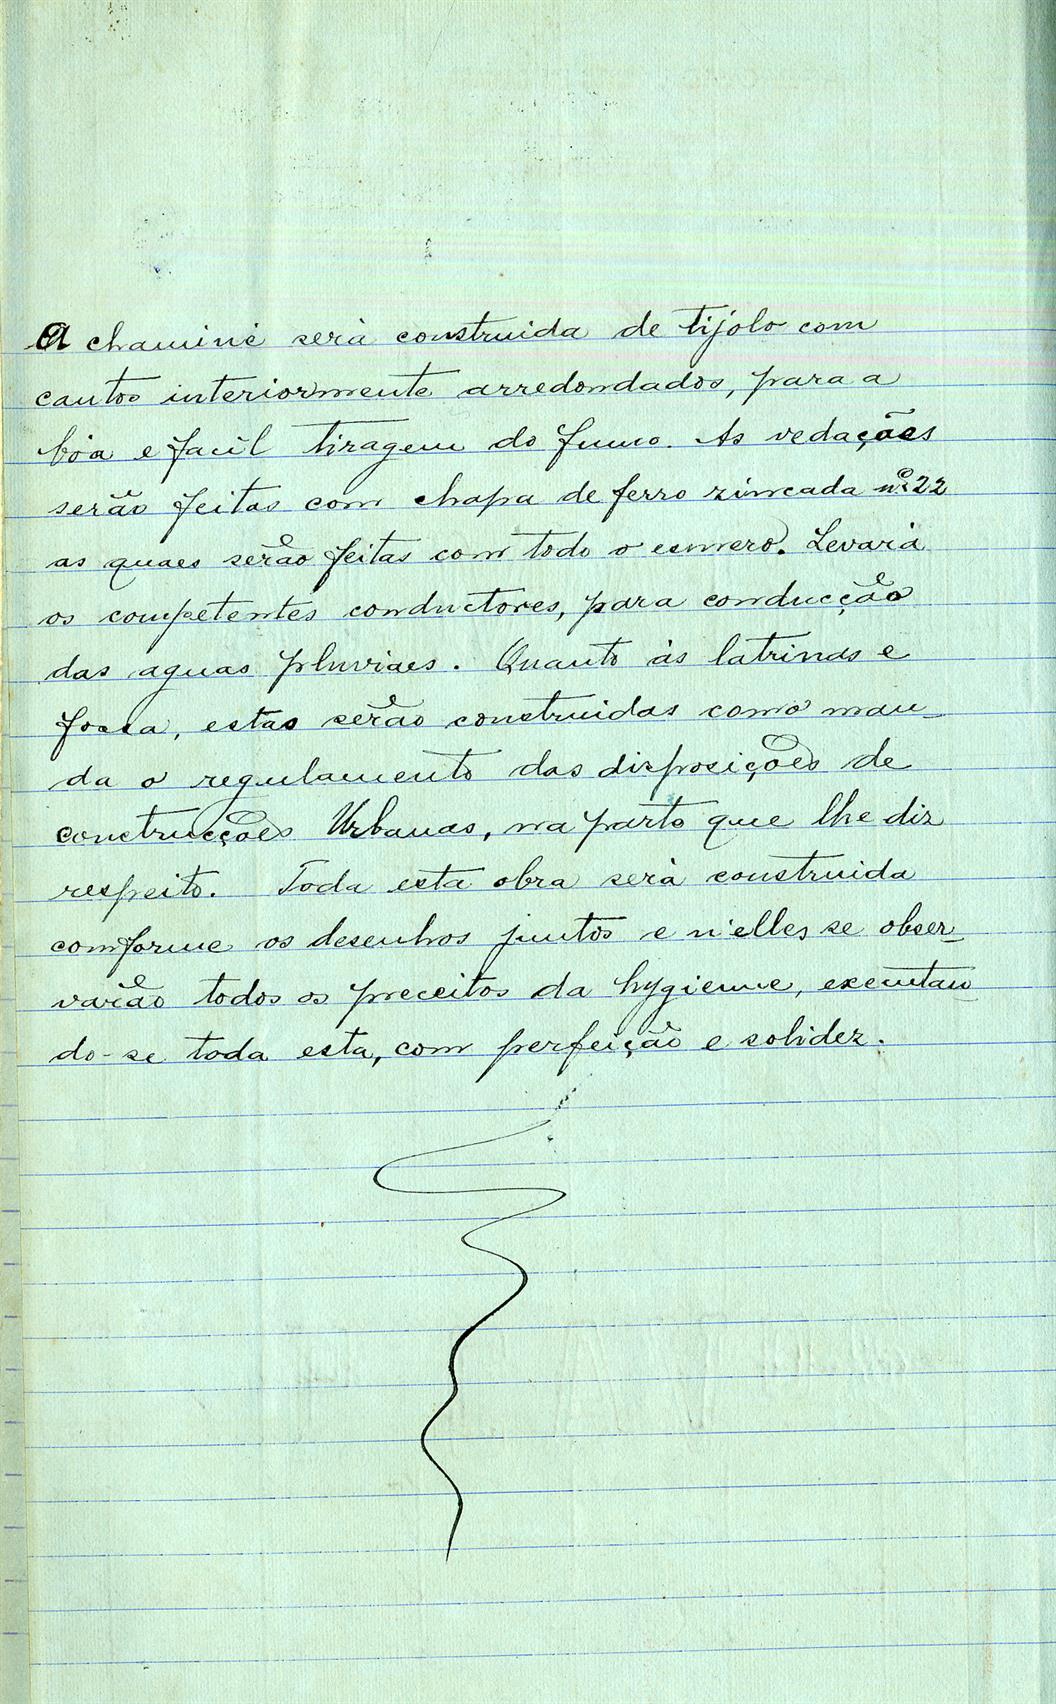 A chaminé será construida de tijolo com
cantos interiormente arredondados, para a
bôa e facil tiragem do fumo. As vedações
serão feitas com chapa de ferro zincada nº 22
as quaes serão feitas com todo o esmero. Levará
os competentes conductores, para conducção
das aguas pluviaes. Quanto ás latrinas e
fossa, estas serão construidas como man-
da o regulamento das disposições de
construcções Urbanas, na parte que lhe diz
respeito. Toda esta obra será construida
comforme os desenhos juntos e n'elles se obser-
varão todos os preceitos da hygienne, executan-
do-se toda esta, com perfeição e solidez.